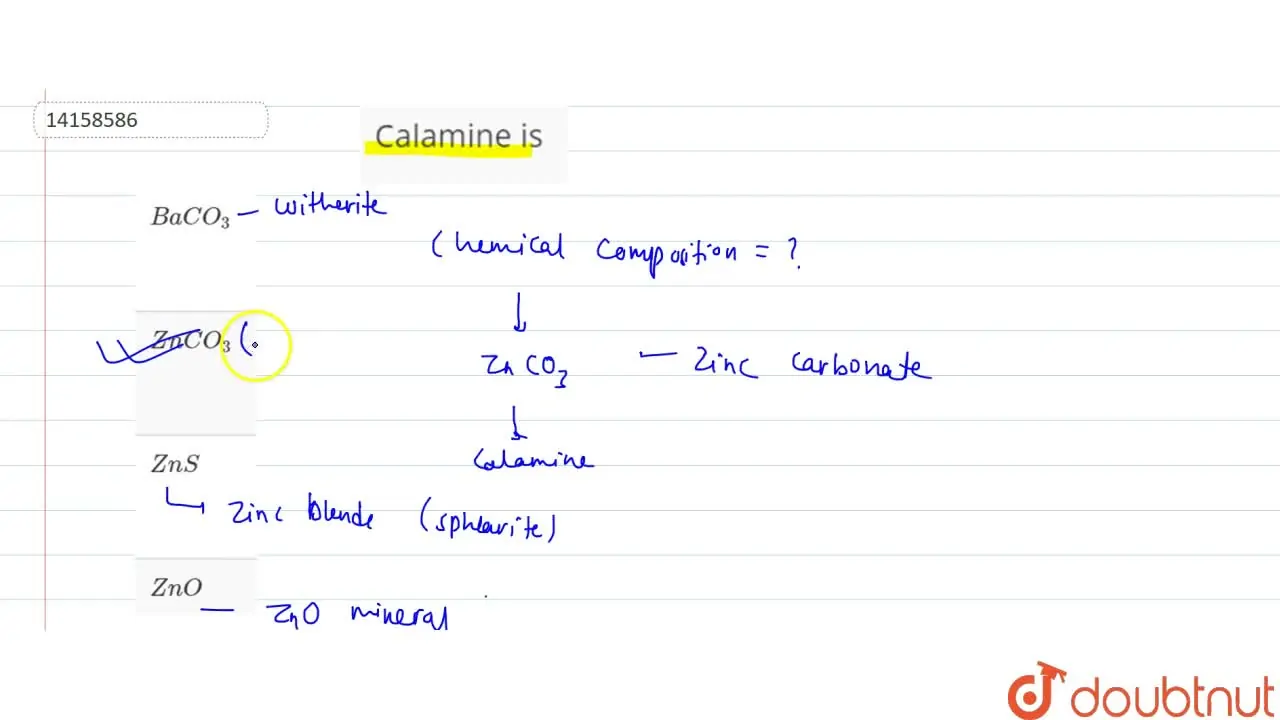 14158586
Calamine is
BaCO3 – Witherite
Chemical Composition = ?
ZnCO3 (
ZnCO3 – Zinc Carbonate
Calamine
ZnS
Zinc blende (sphearite)
ZnO
ZnO mineral
doubtnut